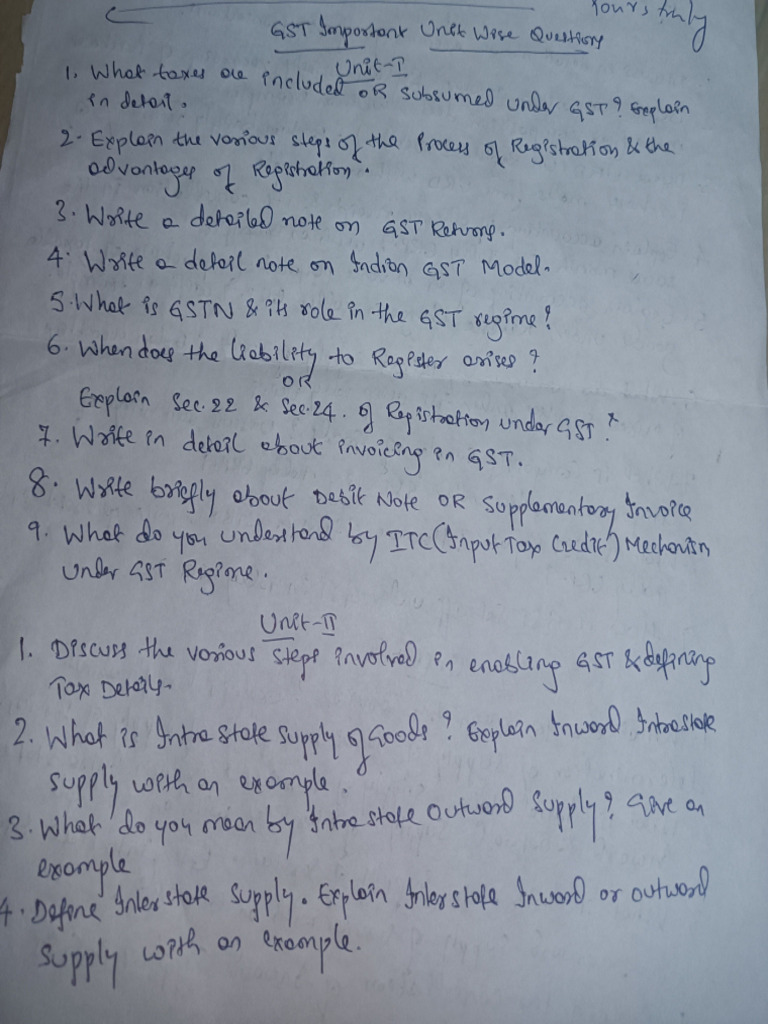 Yours truly
GST Important Unit Wise Questions
Unit-I
1. What taxes are included OR subsumed under GST? Explain
in detail.
2. Explain the various steps of the Process of Registration & the
advantages of Registration.
3. Write a detailed note on GST Returns.
4. Write a detail note on Indian GST Model.
5. What is GSTN & its role in the GST regime?
6. When does the liability to Register arises?
OR
Explain Sec.22 & Sec.24. of Registration under GST?
7. Write in detail about invoicing in GST.
8. Write briefly about Debit Note OR Supplementary Invoice
9. What do you understand by ITC (Input Tax Credit) Mechanism
under GST Regime.
Unit-II
1. Discuss the various steps involved in enabling GST & defining
Tax Details.
2. What is Intra State Supply of Goods? Explain Inward Intrastate
supply with an example.
3. What do you mean by Intra state Outward Supply? Give an
example
4. Define Inter state Supply. Explain Interstate Inward or outward
supply with an example.